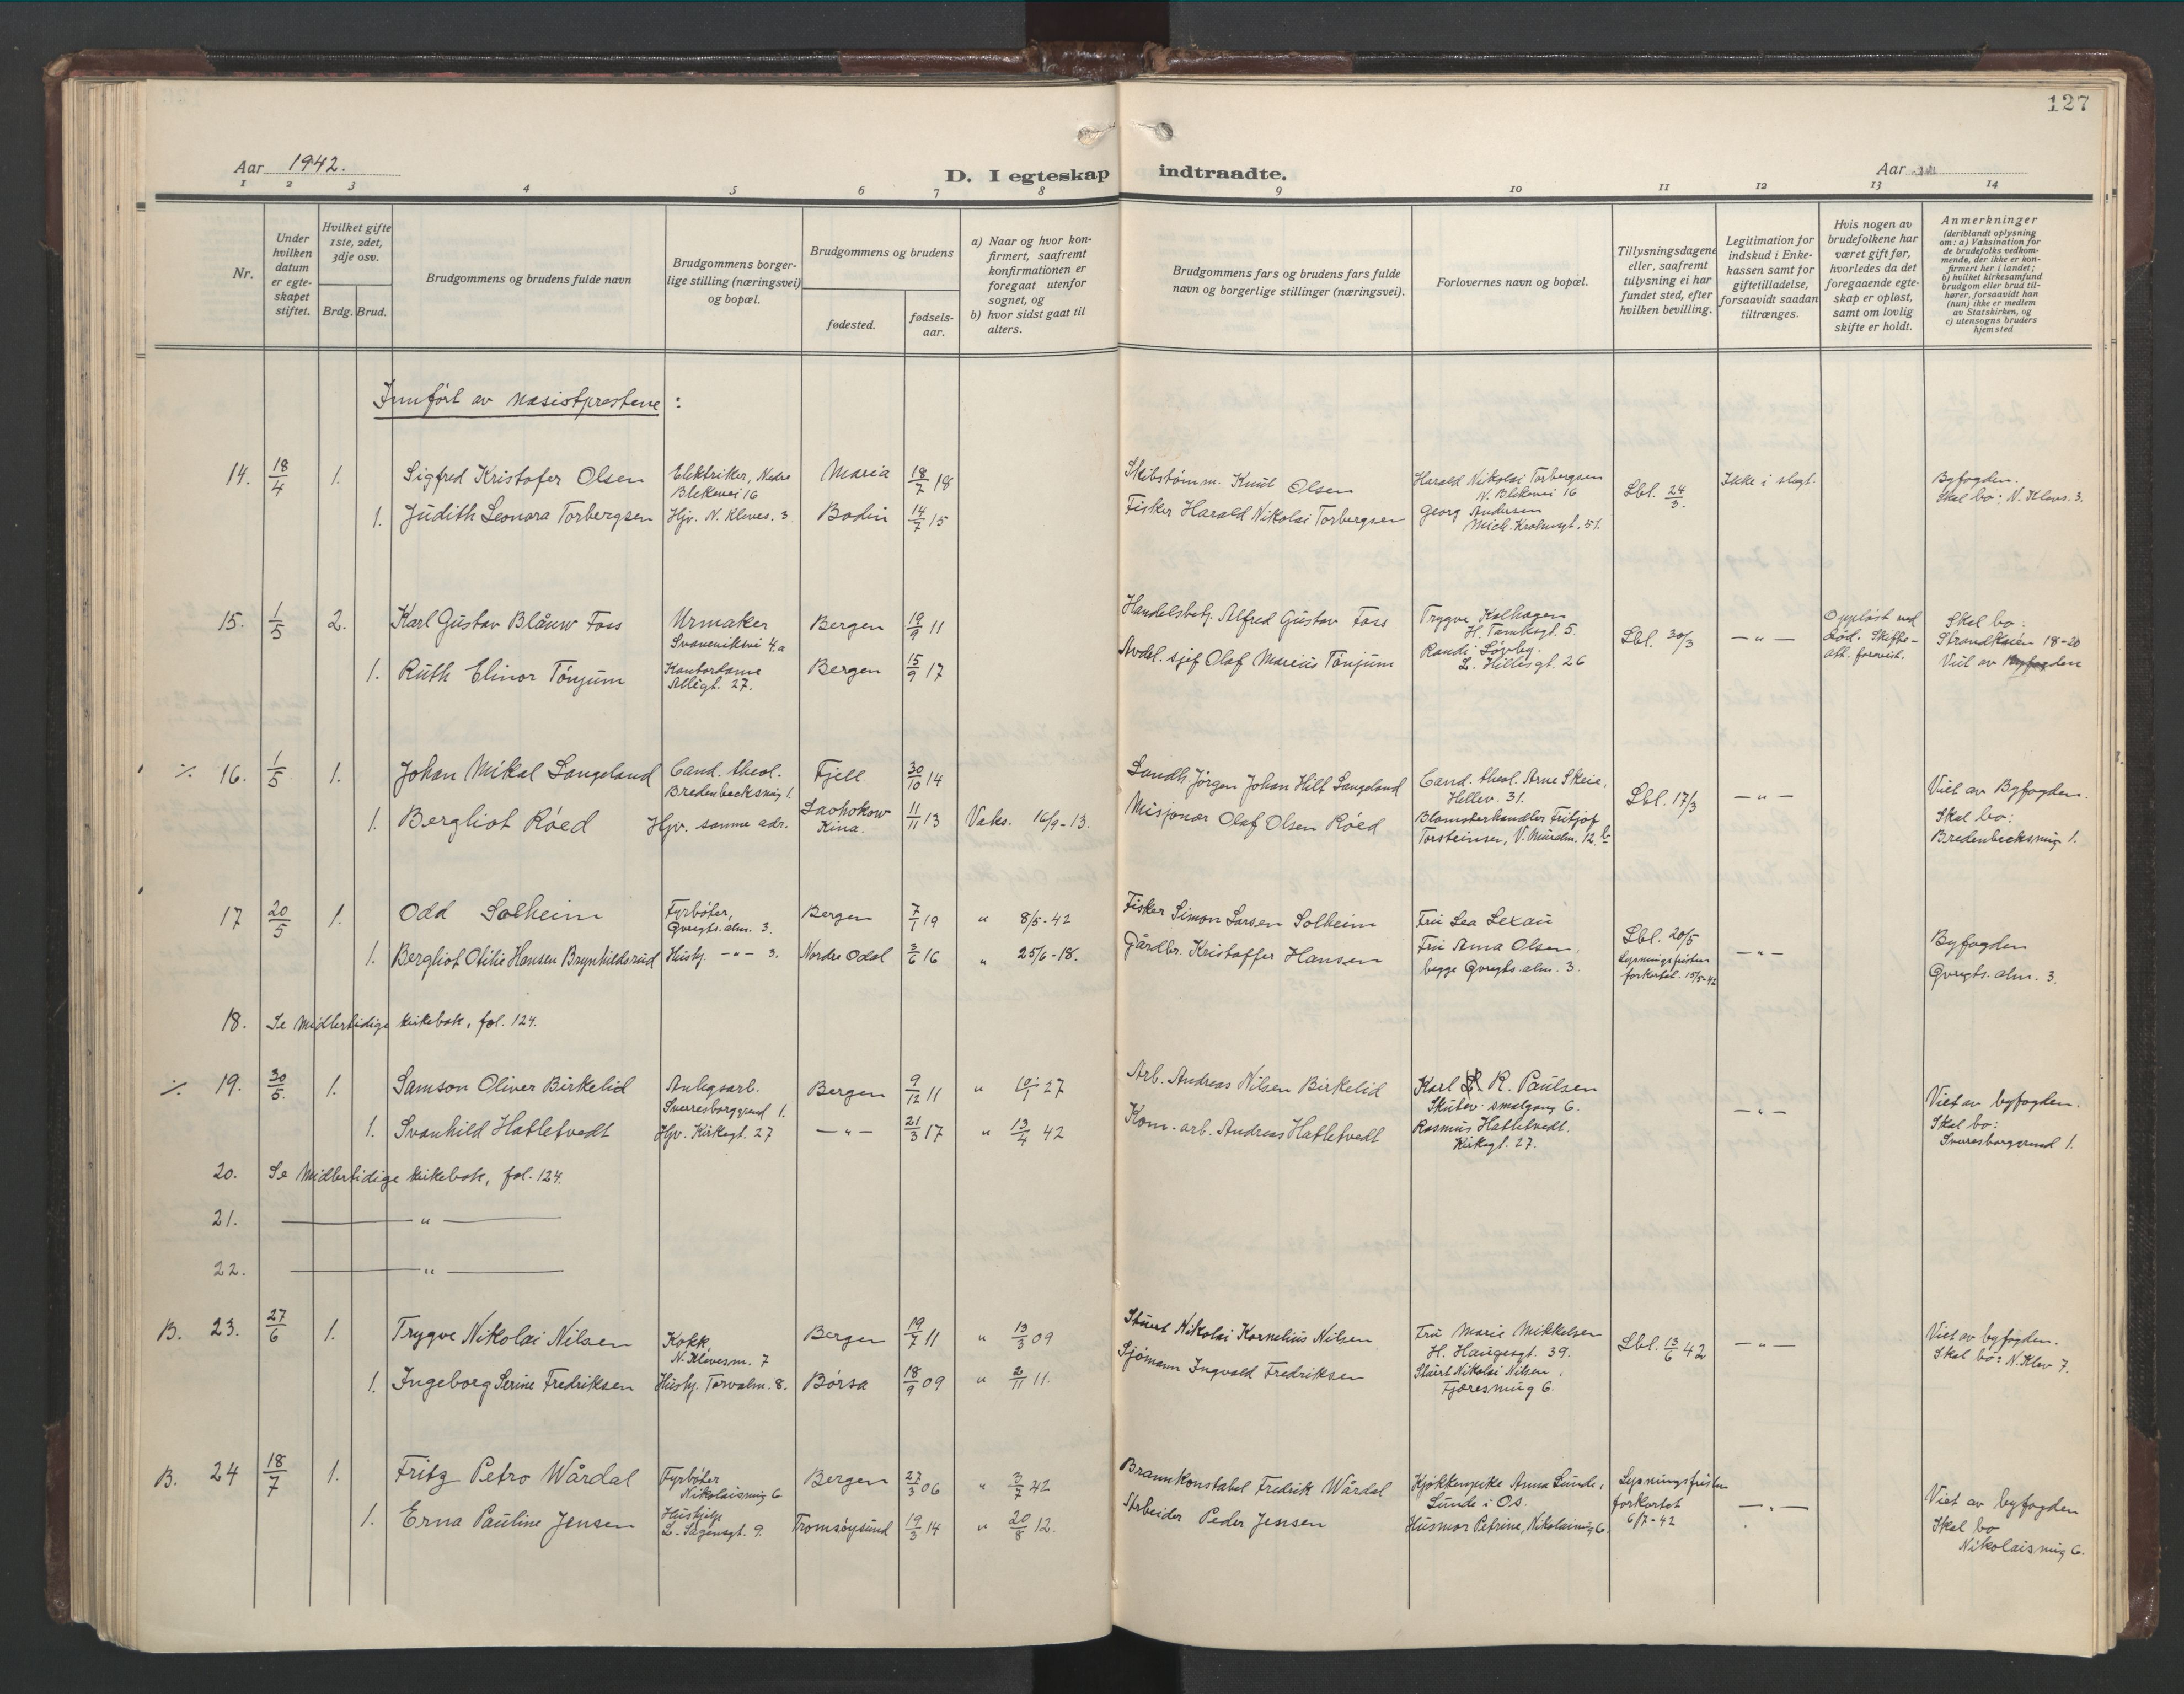 127
Aar 1942.
D. I egteskap indtraadte.
Aar
1 2 3 4 5 6 7 8 9 10 11 12 13 14
Nr.
Under hvilken datum er egteskapet stiftet.
Hvilket gifte 1ste, 2det, 3dje osv.
Brdg. Brud.
Brudgommens og brudens fulde navn
Brudgommens borgerlige stilling (næringsvei) og bopæl.
Brudgommens og brudens
fødested.
fødselsaar.
a) Naar og hvor konfirmert, saafremt konfirmationen er foregaat utenfor sognet, og
b) hvor sidst gaat til alters.
Brudgommens fars og brudens fars fulde navn og borgerlige stillinger (næringsvei).
Forlovernes navn og bopæl.
Tillysningsdagene eller, saafremt tillysning ei har fundet sted, efter hvilken bevilling.
Legitimation for indskud i Enkekassen samt for giftetilladelse, forsaavidt saadan tiltrænges.
Hvis nogen av brudefolkene har været gift før, hvorledes da det foregaaende egteskap er opløst, samt om lovlig skifte er holdt.
Anmerkninger
(deriblandt oplysning om: a) Vaksination for de brudefolks vedkommende, der ikke er konfirmert her i landet; b) hvilket kirkesamfund brudgom eller brud tilhører, forsaavidt han (hun) ikke er medlem av Statskirken, og c) utensogns bruders hjemsted
Innført av nasistprestene:
14. 18/4 1. Sigfred Kristofer Olsen Elektriker, Nedre Blekevei 16 Maria 18/7 18 Skibstømm. Knut Olsen Harald Nikolai Torbergsen N. Blekevei 16 Lbl. 24/3. Ikke i slegt. Byfogden.
1. Judith Leonora Torbergsen Hjv. N. Kleves. 3 Bodin 14/7 15 Fisker Harald Nikolai Torbergsen Georg Andersen Mich. Krohnsgt. 51. Skal bo: N. Kleves. 3.
15. 1/5 2. Karl Gustav Blåuw Foss Urmaker Svaneviksvei 4.a Bergen 19/9 11 Handelsbetj. Alfred Gustav Foss Trygve Kalhagen H. Tanksgt. 5. Lbl. 30/3 —"— Oppløst ved død. Skifteatt. forevist. Skal bo:
1. Ruth Elinor Tønjum Kontordame Allégt. 27. Bergen 15/9 17 Avdel. sjef Olaf Marcius Tønjum Randi Løvby. L. Hillesgt. 26 Strandkaien 18-20
Viet av Byfogden
٪ 16. 1/5 1. Johan Mikal Langeland Cand. theol. Bredenbecksmug 1. Fjell 30/10 14 Landh. Jørgen Johan Hilt Langeland Cand. theol. Arne Skeie, Hellev. 31. Lbl. 17/3 —"— Viet av Byfogden.
1. Bergliot Røed Hjv. samme adr. Laohokow Kina. 11/11 13 Vaks. 16/9-13. Misjonær Olaf Olsen Røed Blomsterhandler Fritjof Torsteinsen, V. Muralm. 12 b Skal bo:
Bredenbecksmug 1.
17 20/5 1. Odd Solheim Fyrbøter, Qvregts. alm. 3. Bergen 7/1 19 " 8/5-42 Fisker Simon Larsen Solheim Fru Lea Lexau Lbl. 20/5 —"— Byfogden
1. Bergliot Otilie Hansen Brynhildsrud Hushj. —"— 3. Nordre Odal 3/6 16 " 25/6-18. Gårdbr. Kristoffer Hansen Fru Anna Olsen, begge Qvregts. alm. 3. Lysningsfristen forkortet. 15/5-42 Qvregts. alm. 3.
18. Se Midlertidige kirkebok, fol. 124.
٪ 19. 30/5. 1. Samson Oliver Birkelid Anlegsarb. Sverresborggrend 1. Bergen 9/12 11 " 27 Arb. Andreas Nilsen Birkelid Karl R. Paulsen Skutev. smalgang 6. —"— Viet av byfogden.
1. Svanhild Hatletvedt Hjv. Kirkegt. 27 —"— 21/3 17 " 13/4 42 Kom. arb. Andreas Hatletvedt Rasmus Hatletvedt. Kirkegt. 27. Skal bo:
Sverresborggrend 1.
20. Se Midlertidige kirkebok, fol. 124.
21. —"—
22. —"—
B. 23. 27/6 1. Trygve Nikolai Nilsen Kokk, N. Klevesm. 7 Bergen 19/7 11 " 13/3 09 Stuert Nikolai Kornelius Nilsen Fru Marie Mikkelsen H. Haugesgt. 39. Lbl. 13/6 42 —"— Viet av byfogden.
1. Ingeborg Serine Fredriksen Hushj. Torvalm. 8. Børsa 18/9 09 " 2/11 11. Sjømann Ingvald Fredriksen Stuert Nikolai Nilsen, Fjøresmug 6. Skal bo: N. Klev 7.
B. 24 18/7 1. Fritz Petro Wårdal Fyrbøter Nikolaismug 6 Bergen 27/3 06 " 3/7 42 Brannkonstabel Fredrik Wårdal Kjøkkenpike Anna Lunde, Lunde i Os. Lysningsfristen forkortet 6/7-42 —"— Viet av byfogden
1. Erna Pauline Jensen Hushjelp L. Sagensgt. 9. Tromsøysund 19/3 14 " 20/8 12. Arbeider Peder Jensen Husmor Petrine, Nikolaimug 6. Skal bo
Nikolaismug 6.